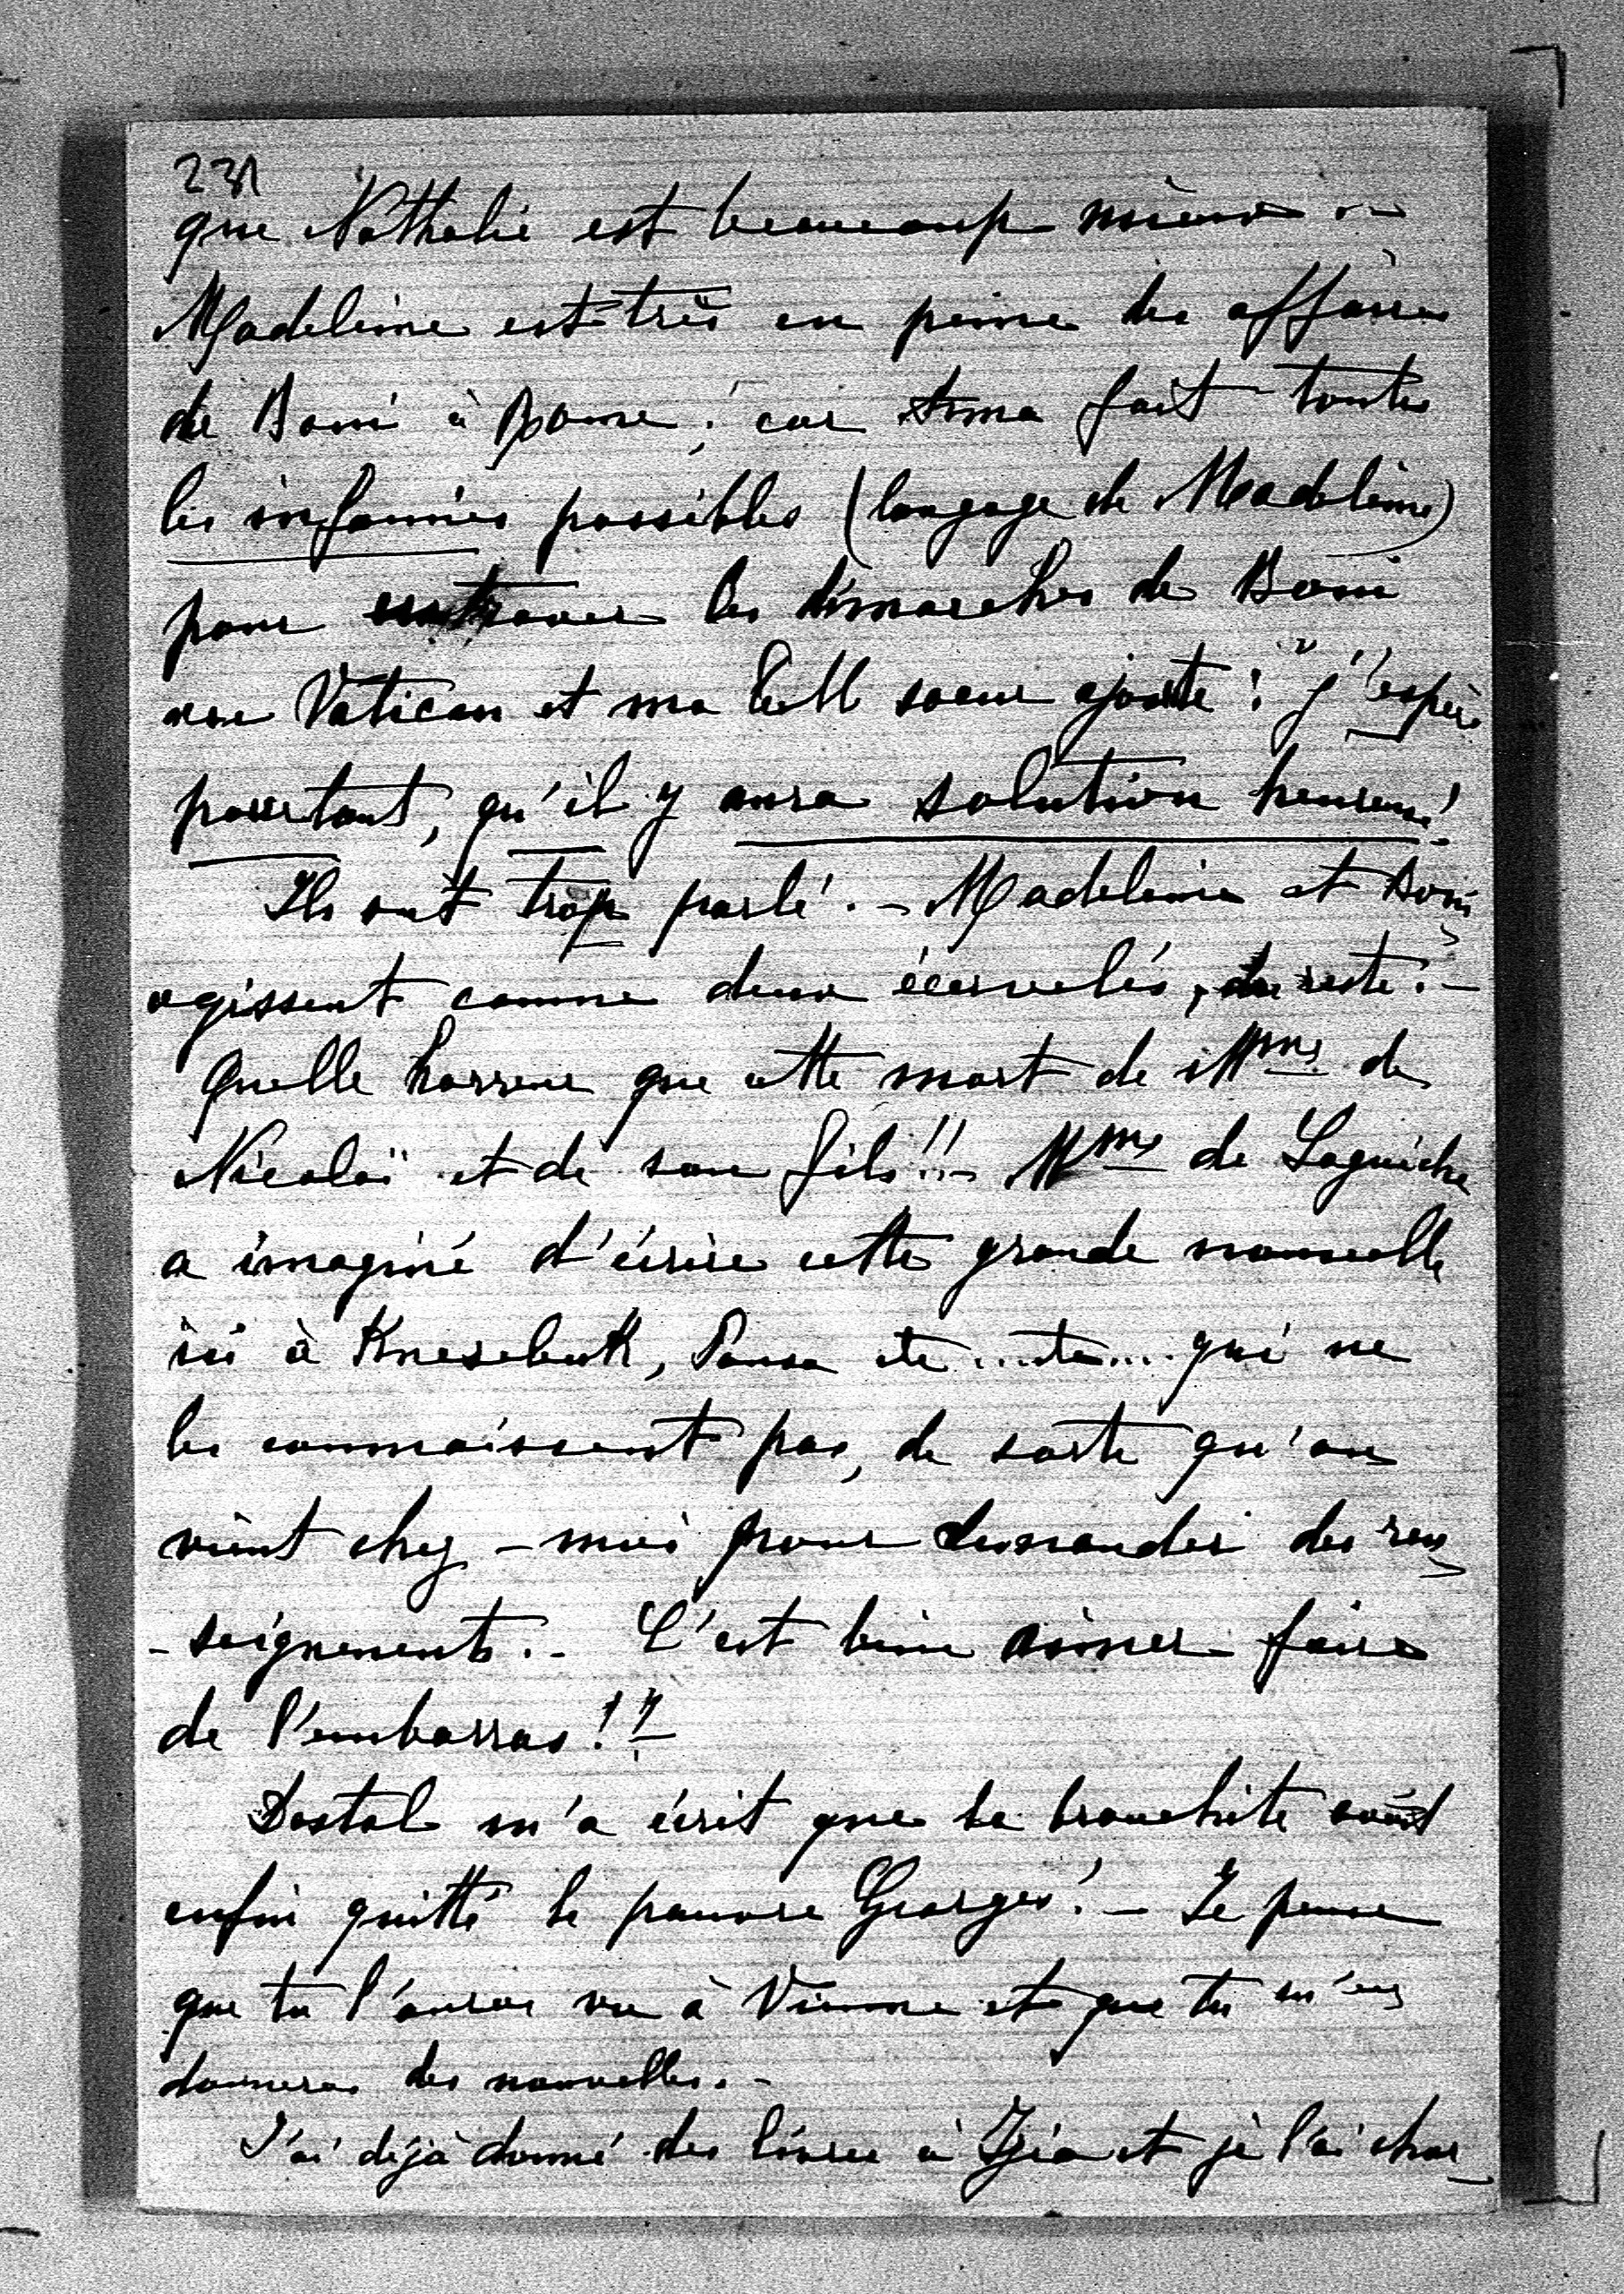 231
que Nathalie est beaucoup mieux.—
Madeleine est très en peine des affaires
de Boni à Rome; car Anna fait toutes
les infamies possibles (langage de Madeleine)
pour entraver les démarches de Boni
au Vatican et ma belle soeur ajoute: "j'espère
pourtant, qu'il y aura solution heureuse!
Ils ont trop parlé.- Madeleine et Boni
agissent comme deux écervelés, du reste.-
Quelle horreur que cette mort de Mme de
Nicolaï et de son fils!!- Mme de Laguiche
a imaginé d'écrire cette grande nouvelle
ici à Knesebeck, Pansa etc...etc... qui ne
les connaissent pas, de sorte qu'on
vient chez-moi pour demander des ren
-seignements.- C'est bien aimer faire
de l'embarras!?
Dostal m'a écrit que la bronchite avait
enfin quitté le pauvre Georges!- Je pense
que tu l'auras vu à Vienne et que tu m'en
donneras des nouvelles.-
J'ai déjà donné des livres à et je l'ai char-